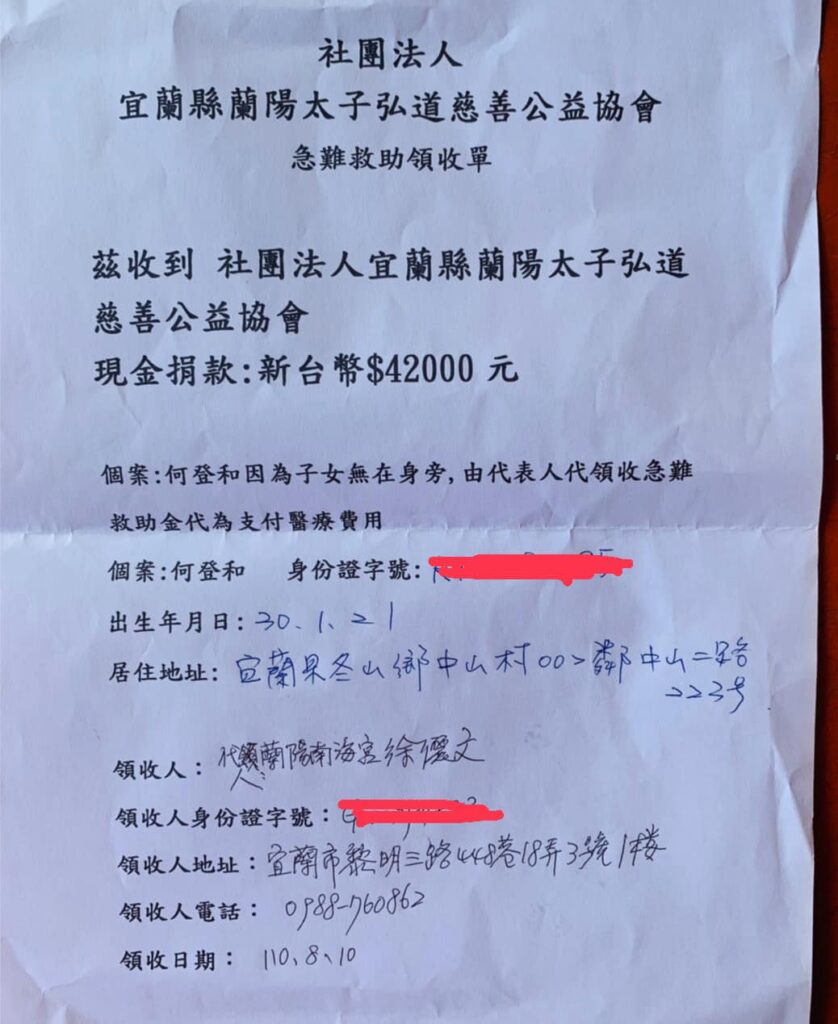 社團法人
宜蘭縣蘭陽太子弘道慈善公益協會
急難救助領收單
茲收到 社團法人宜蘭縣蘭陽太子弘道
慈善公益協會
現金捐款:新台幣$42000 元
個案:何登和因為子女無在身旁,由代表人代領收急難
救助金代為支付醫療費用
個案:何登和 身份證字號:
出生年月日:30.1.21
居住地址:宜蘭县冬山鄉中山村002鄰中山二路
223号
領收人:代領人:蘭陽南海宮徐儷文
領收人身份證字號:
領收人地址:宜蘭市黎明三路448巷18弄3號1楼
領收人電話:0988-760862
領收日期:110、8、10